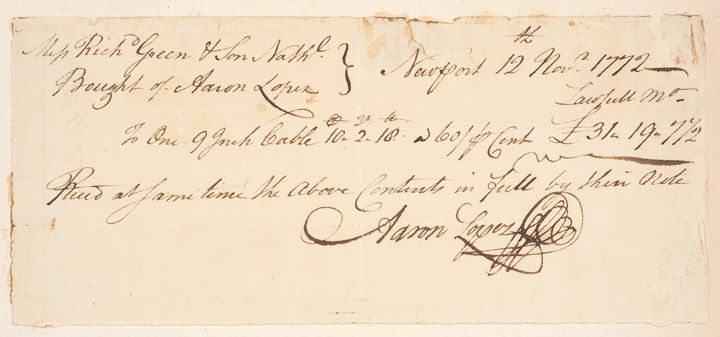 Messrs Richd Green & Son Nathl.
Bought of Aaron Lopez
Newport 12th Novr 1772
Lawfull Mo
To One 9 Inch Cable 10.. 2.. 18.. a 60/ ⅌ Cent £31.. 19.. 7½
Recd at same time the Above Contents in full by their Note
Aaron Lopez